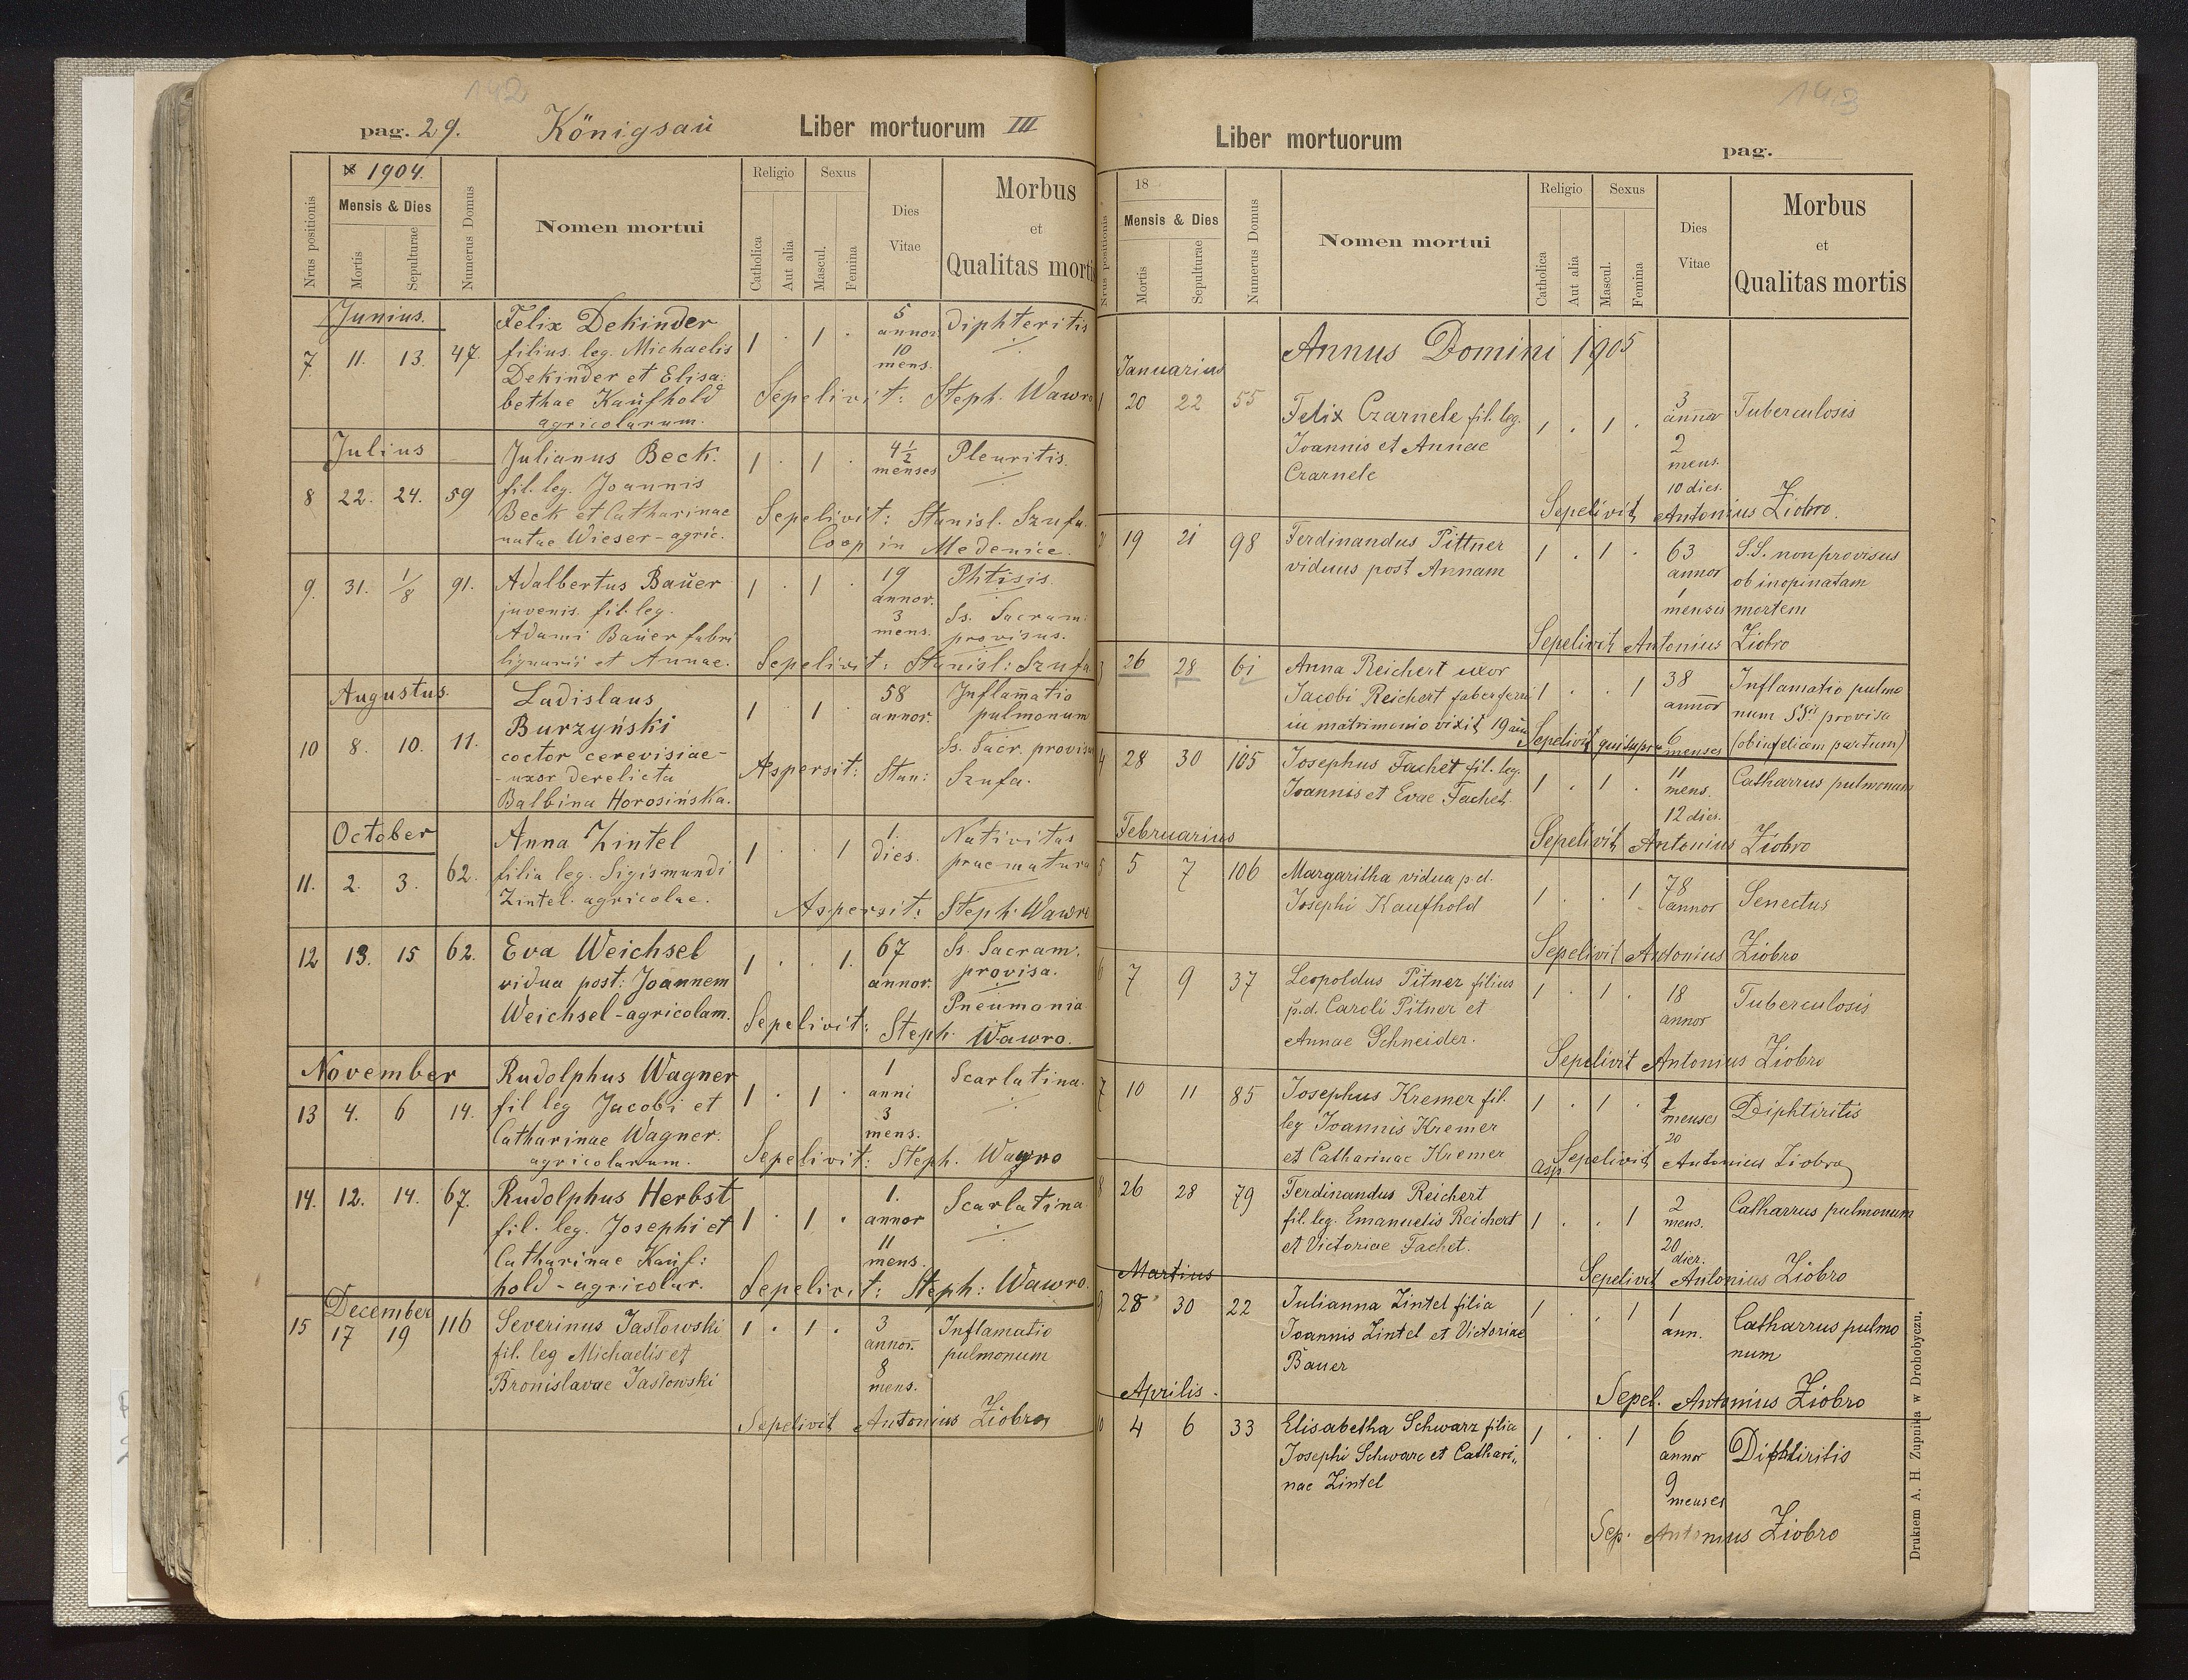 142
pag. 29. Königsaŭ Liber mortuorum III
1904.
Nrus positionis
Mensis & Dies
Mortis
Sepulturae
Numerus Domus
Nomen mortui
Religio
Catholica
Aut alia
Sexus
Mascul.
Femina
Dies
Vitae
Morbus
et
Qualitas mortis
Junius.
7 11. 13. 47. Felix Dekinder 1 . 1 . 5 annor. 10 mens. Diphteritis
filius. leg. Michaelis
Dekinder et Elisa:
bethae Kaŭfhold
agricolarum.
Sepelivit: Steph. Wawro
Julius
8 22. 24. 59 Julianus Beck. 1 . 1 . 4½ menses Pleuritis.
fil. leg. Joannis
Beck et Catharinae
natae Wieser - agric.
Sepelivit: Stanisl. Szufa
Coop in Medenice.
9. 31. 1/8 91. Adalbertus Baŭer 1 . 1 . 19 annor. 3 mens. Phtisis
juvenis. fil. leg.
Adami Baŭer fabri
lignarii et Annae.
Ss. Sacram:
provisus.
Sepelivit: Stanisl: Szufa
Augustus.
10 8. 10. 11. Ladislaus 1 1 58 annor. Inflamatio
Burzyński
pulmonum
coctor cerevisiae -
Ss. Sacr. provisus
- uxor derelicta
Balbina Horosińska.
Aspersit: Stan: Szufa.
October
11. 2. 3. 62. Anna Zintel 1 . . 1 1. dies. Nativitas
filia leg. Sigismundi
praematura
Zintel. agricolae.
Aspersit: Steph. Wawro
12 13. 15 62. Eva Weichsel 1 . . 1. 67 annor. Ss. Sacram.
vidua post: Joannem
provisa.
Weichsel - agricolam.
Pneumonia
Sepelivit: Steph. Wawro.
November
13 4. 6 14. Rudolphus Wagner 1 . 1 . 1 anni 3 mens. Scarlatina.
fil leg Jacobi et
Catharinae Wagner.
agricolarum.
Sepelivit: Steph. Wawro
14. 12. 14. 67. Rudolphus Herbst 1 . 1 . 1. annor 11 mens. Scarlatina
fil. leg. Josephi et
Catharinae Kauf:
hold - agricolar.
Sepelivit: Steph: Wawro.
December
15 17 19 116 Severinus Jasłowski 1 . 1 . 3 annor. 8 mens. Inflamatio
fil. leg Michaelis et
pulmonum
Bronislavae Jasłowski
Sepelivit Antonius Ziobro
143
Liber mortuorum pag.
18
Nrus positionis
Mensis & Dies
Mortis
Sepulturae
Numerus Domus
Nomen mortui
Religio
Catholica
Aut alia
Sexus
Mascul.
Femina
Dies
Vitae
Morbus
et
Qualitas mortis
Annus Domini 1905
Januarius
1 20 22 55 Felix Czarnele fil. leg. 1 . 1 . 3 annor 2 mens. 10 dies. Tuberculosis
Joannis et Annae
Czarnele
Sepelivit Antonius Ziobro.
2 19 21 98 Ferdinandus Pittner 1 . 1 . 63 annor 1 mensis S.S. non provisus
viduus post Annam
ob inopinatam
mortem
Sepelivit Antonius Ziobro
3 26 28 61 Anna Reichert uxor 1 . . 1 38 annor 6 menses Inflamatio pulmo
Jacobi Reichert faber ferri
num SSis provisa
in matrimonio vixit 19 ann
(ob infelicem partum)
Sepelivit qui supra
4 28 30 105 Josephus Fachet fil. leg. 1 . 1 . 11 mens. 12 dies. Catharrus pulmonum
Joannis et Evae Fachet.
Sepelivit Antonius Ziobro
Februarius
5 5 7 106 Margaritha vidua p. d. 1 . . 1 78 annor Senectus
Josephi Kaufhold
Sepelivit Antonius Ziobro
6 7 9 37 Leopoldus Pitner filius 1 . 1 . 18 annor Tuberculosis
p. d. Caroli Pitner et
Annae Schneider.
Sepelivit Antonius Ziobro
7 10 11 85 Josephus Kremer fil. 1 . 1 . menses 20 Diphtiritis
leg Joannis Kremer
et Catharinae Kremer
asp. Sepelivit Antonius Ziobro
8 26 28 79 Ferdinandus Reichert 1 . . 1 2 mens. 20 dier. Catharrus pulmonum
fil. leg. Emanuelis Reichert
et Victoriae Fachet.
Sepelivit Antonius Ziobro
Martius
9 28 30 22 Julianna Zintel filia 1 . . 1 1 ann. Catharrus pulmo
Joannis Zintel et Victoriae
num
Bauer
Sepel. Antonius Ziobro
Aprilis.
10 4 6 33 Elisabetha Schwarz filia 1 . . 1 6 annor 9 menses Diphtiritis
Josephi Schwarc et Cathari„
nae Zintel
Sep. Antonius Ziobro
Drukiem A. H. Zupnika w Drohobyczu.